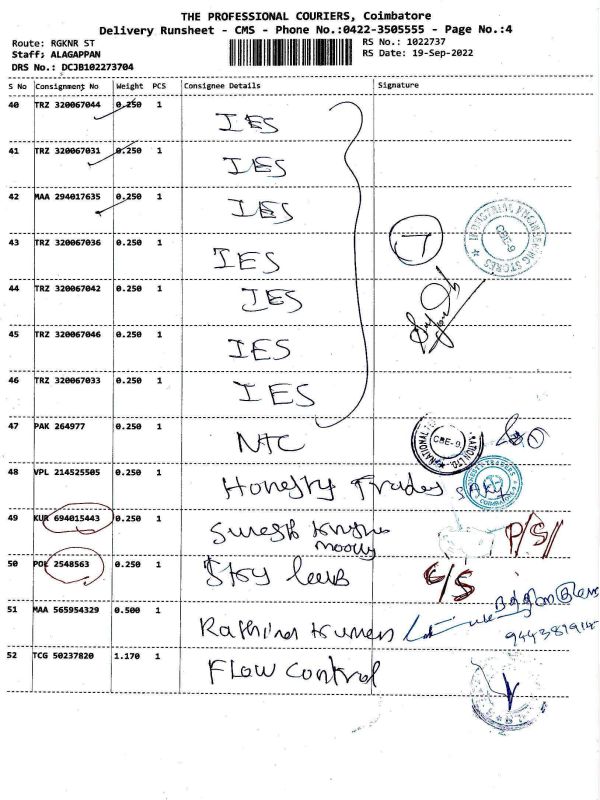 THE PROFESSIONAL COURIERS, Coimbatore
Delivery Runsheet - CMS - Phone No.:0422-3505555 - Page No.:4
Route: RGKNR ST
Staff; ALAGAPPAN
DRS No.: DCJB102273704
RS No.: 1022737
RS Date: 19-Sep-2022
S No Consignment No Weight PCS Consignee Details Signature
40 TRZ 320067044 0.250 1 IES
41 TRZ 320067031 0.250 1 IES
42 MAA 294017635 0.250 1 IES
43 TRZ 320067036 0.250 1 IES
7
INDUSTRIAL ENGINEERING STORES
CBE-9
44 TRZ 320067042 0.250 1 IES
45 TRZ 320067046 0.250 1 IES
46 TRZ 320067033 0.250 1 IES
47 PAK 264977 0.250 1 NTC
CBE-9
48 VPL 214525505 0.250 1 Honesty Trades
49 KUR 694015443 0.250 1 Suresh
P/S/
50 POL 2548563 0.250 1
51 MAA 565954329 0.500 1 Rathina Kumar
52 TCG 50237820 1.170 1 Flow control